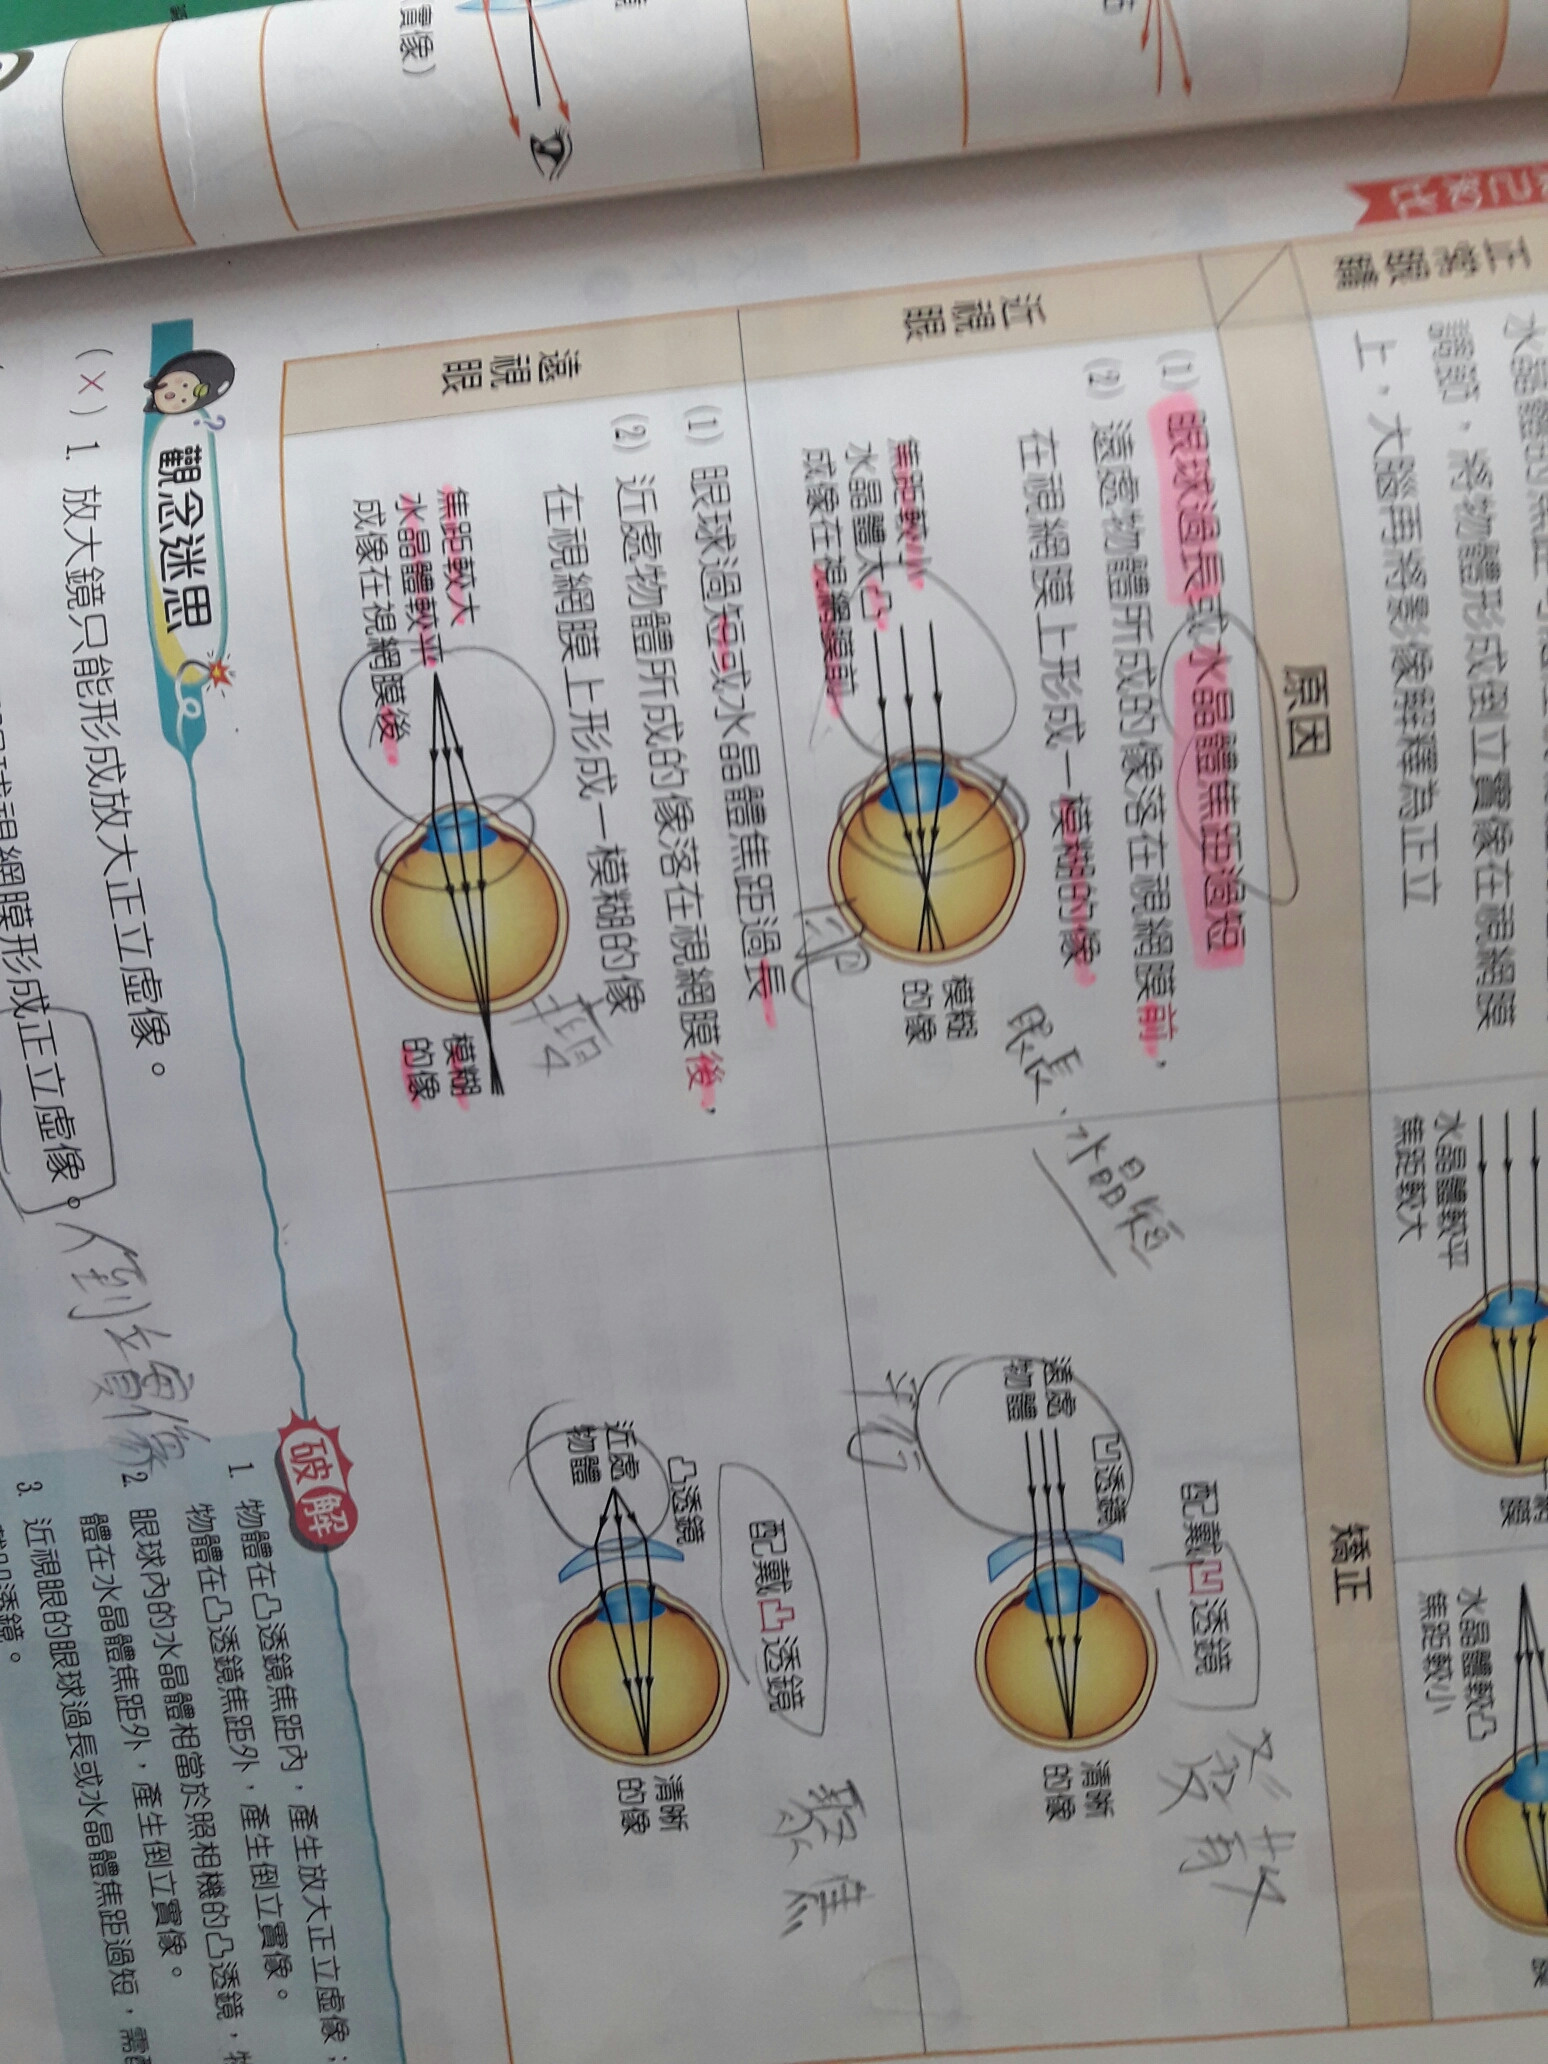 實像）
正常眼睛
調節，將物體形成倒立實像在視網膜
上，大腦再將影像解釋為正立
水晶體較平
焦距較大
水晶體較凸
焦距較小
原因
矯正
近視眼
(1) 眼球過長或水晶體焦距過短
(2) 遠處物體所成的像落在視網膜前，
在視網膜上形成一模糊的像
焦距較小
水晶體太凸
成像在視網膜前
模糊
的像
眼長、水晶短
配戴凹透鏡
發散
遠處
物體
凹透鏡
清晰
的像
平行
遠視眼
(1) 眼球過短或水晶體焦距過長
(2) 近處物體所成的像落在視網膜後，
在視網膜上形成一模糊的像
焦距較大
水晶體較平
成像在視網膜後
模糊
的像
配戴凸透鏡
聚焦
近處
物體
凸透鏡
清晰
的像
觀念迷思
(×) 1. 放大鏡只能形成放大正立虛像。
視網膜形成正立虛像。
倒立實像
破解
1. 物體在凸透鏡焦距內，產生放大正立虛像；
物體在凸透鏡焦距外，產生倒立實像。
2. 眼球內的水晶體相當於照相機的凸透鏡，物
體在水晶體焦距外，產生倒立實像。
3. 近視眼的眼球過長或水晶體焦距過短，需配
透鏡。